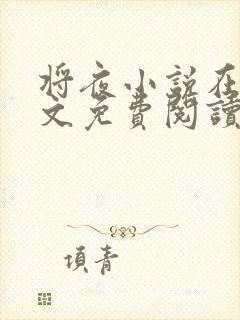 将夜小说在
文免费阅读
项青